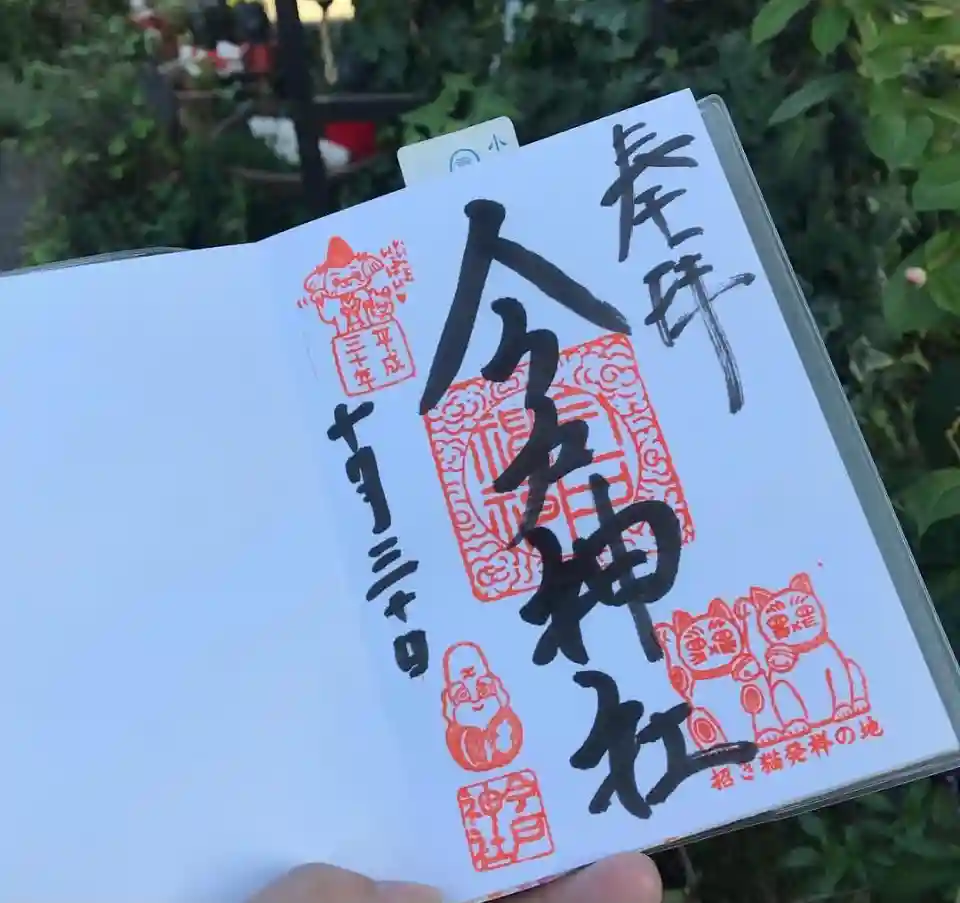 小
奉拝
今戸神社
招き猫発祥の地
平成
三十年
十月三十日
今戸
神社